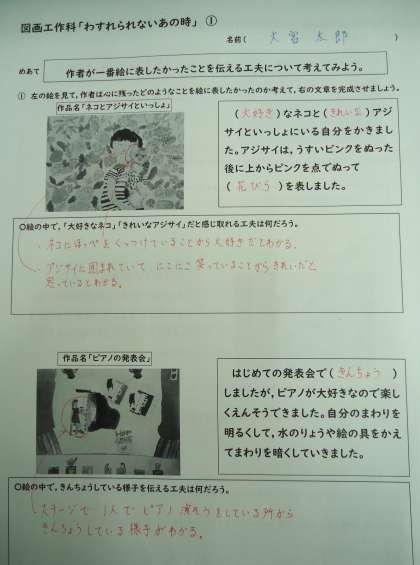 図画工作科「わすれられないあの時」 ①
名前( 大宮 太郎 )
めあて 作者が一番絵に表したかったことを伝える工夫について考えてみよう。
① 左の絵を見て,作者は心に残ったどのようなことを絵に表したかったのか考えて,右の文章を完成させましょう。
作品名「ネコとアジサイといっしょ」
(大好き)なネコと(きれいな)アジ
サイといっしょにいる自分をかきまし
た。アジサイは,うすいピンクをぬった
後に上からピンクを点でぬって
(花びら)を表しました。
○絵の中で,「大好きなネコ」,「きれいなアジサイ」だと感じ取れる工夫は何だろう。
・ネコにほっぺをくっつけていることから大好きだとわかる。
・アジサイに囲まれていて にこにこ笑っていることからきれいだと
思っているとわかる。
作品名「ピアノの発表会」
はじめての発表会で(きんちょう)
しましたが,ピアノが大好きなので楽し
くえんそうできました。自分のまわりを
明るくして,水のりょうや絵の具をかえ
てまわりを暗くしていきました。
○絵の中で,きんちょうしている様子を伝える工夫は何だろう。
・ステージで 1人で ピアノ 演そうをしている所から
きんちょうしている様子がわかる。